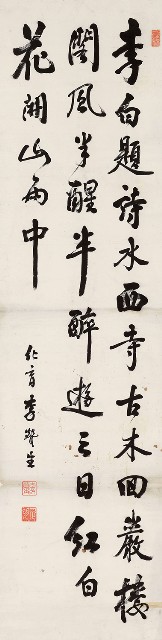 李白題詩水西寺古木回巖樓
閣風半醒半醉遊三日紅白
花開山雨中
仁育李贊生